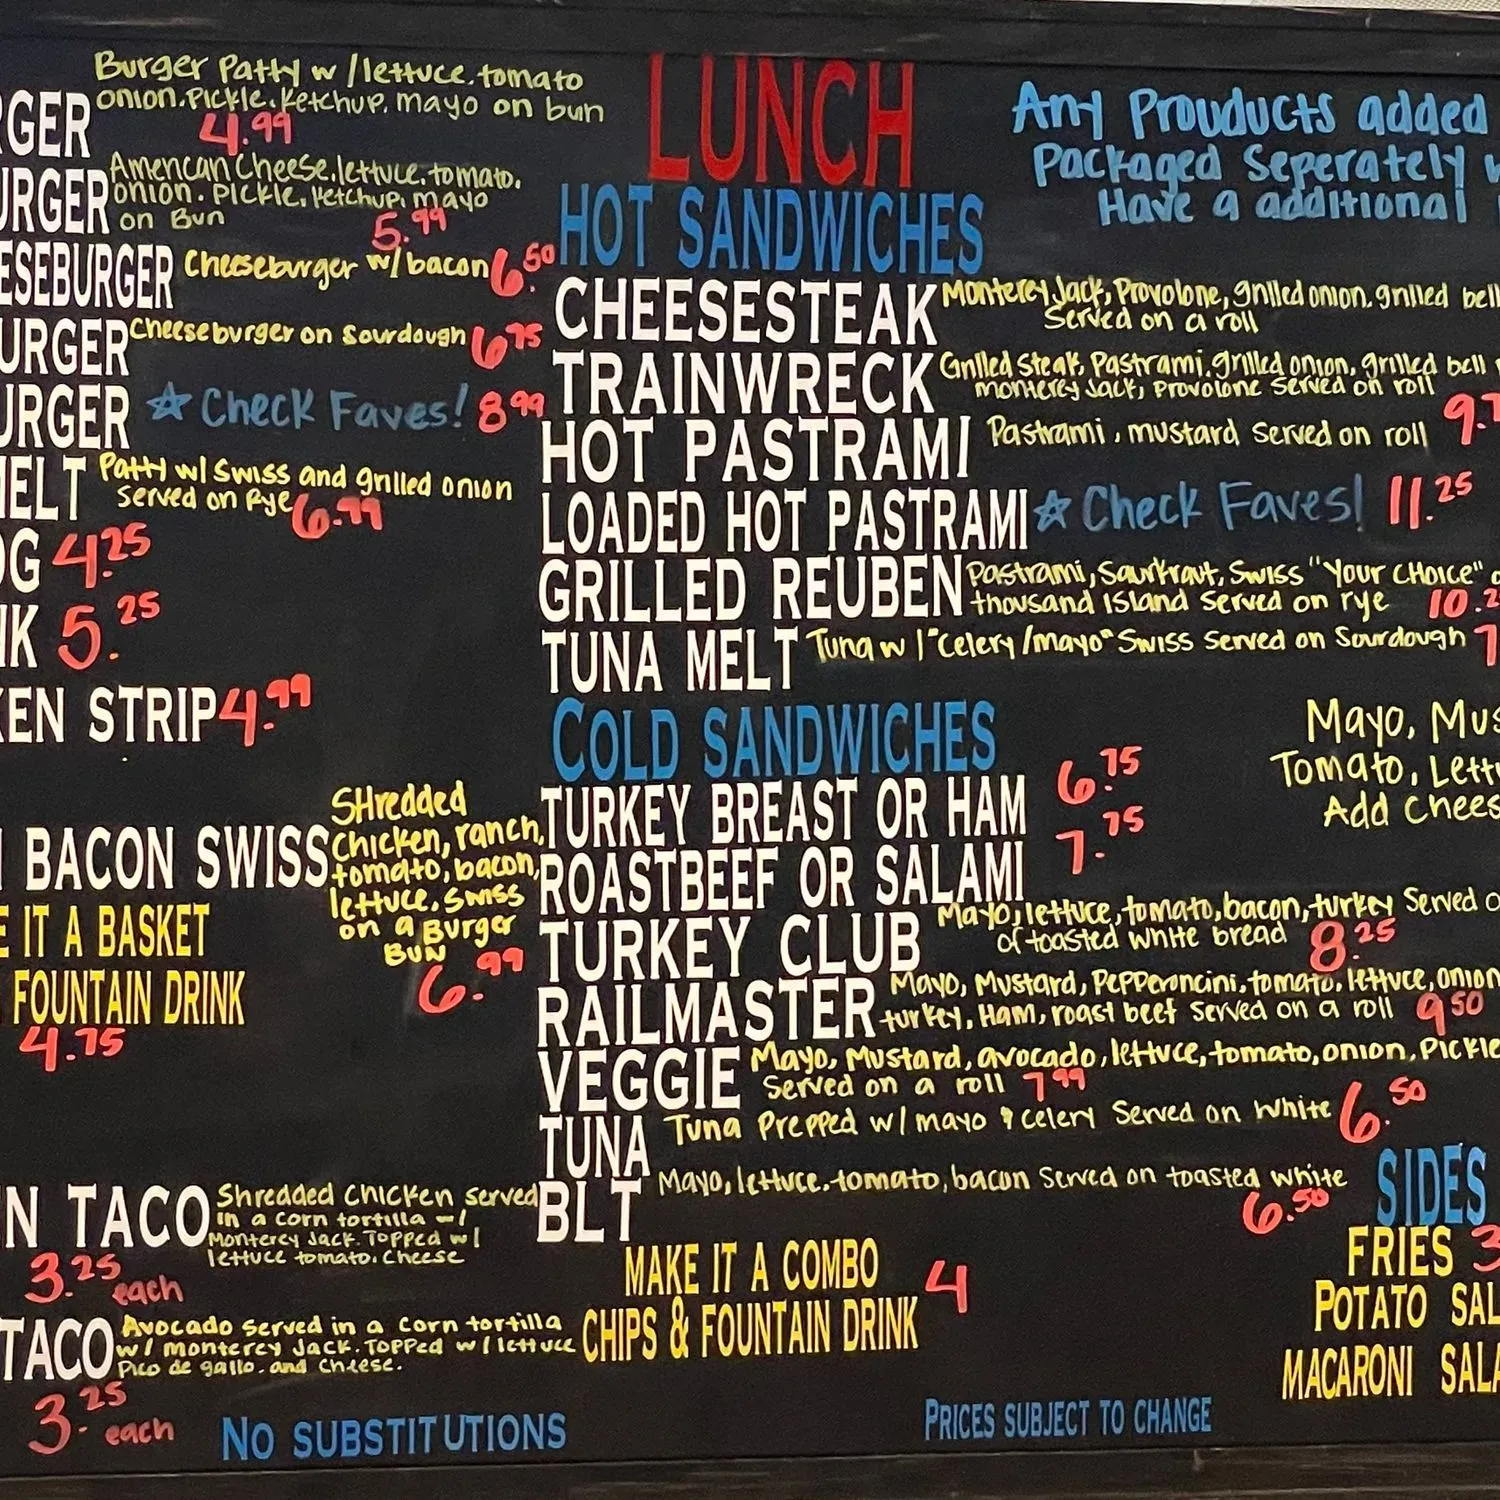 Burger Patty w/lettuce.tomato
onion.Pickle.Ketchup.mayo on bun
4.99
American Cheese.lettuce.tomato.
onion. Pickle.Ketchup.mayo
on Bun
5.99
Cheeseburger w/bacon 6.50
Cheeseburger on Sourdough 6.75
☆ Check Faves! 8.99
Patty w/ Swiss and grilled onion
Served on Rye 6.99
4.25
5.25
STRIP 4.99
BACON SWISS
SHredded
Chicken, ranch,
tomato, bacon,
lettuce, Swiss
on a Burger
BUN
6.99
IT A BASKET
FOUNTAIN DRINK
4.75
TACO
Shredded Chicken served
in a corn tortilla w/
Monterey Jack.TOPPed w/
lettuce tomato.Cheese
3.25 each
TACO
Avocado Served in a Corn tortilla
w/ monterey Jack.TOPPed w/lettuce
Pico de gallo.and Cheese.
3.25 each
NO SUBSTITUTIONS
LUNCH
HOT SANDWICHES
CHEESESTEAK
Monterey Jack, Provolone, grilled onion.grilled bell
Served on a roll
TRAINWRECK
Grilled Steak, Pastrami.grilled onion, grilled bell
monterey Jack, Provolone Served on roll
HOT PASTRAMI Pastrami, mustard Served on roll
LOADED HOT PASTRAMI ☆ Check Faves! 11.25
GRILLED REUBEN
Pastrami, Saurkraut, Swiss "Your CHOICE"
thousand ISland Served on rye
TUNA MELT Tuna w/"Celery/mayo" Swiss Served on Sourdough
COLD SANDWICHES
TURKEY BREAST OR HAM 6.75
ROASTBEEF OR SALAMI 7.75
TURKEY CLUB
Mayo, lettuce, tomato, bacon, turkey Served
of toasted white bread 8.25
RAILMASTER
Mayo, Mustard, Pepperoncini.tomato, lettuce, onion
turkey, Ham, roast beef Served on a roll 9.50
VEGGIE
Mayo, Mustard, avocado, lettuce, tomato, onion.Pickle
Served on a roll 7.99
TUNA Tuna Prepped w/ mayo & celery Served on White 6.50
BLT Mayo, lettuce.tomato, bacon Served on toasted white
6.50
MAKE IT A COMBO
CHIPS & FOUNTAIN DRINK 4
PRICES SUBJECT TO CHANGE
Any Prouducts added
Packaged Seperately
Have a additional
Mayo,
Tomato,
Add
SIDES
FRIES
POTATO
MACARONI